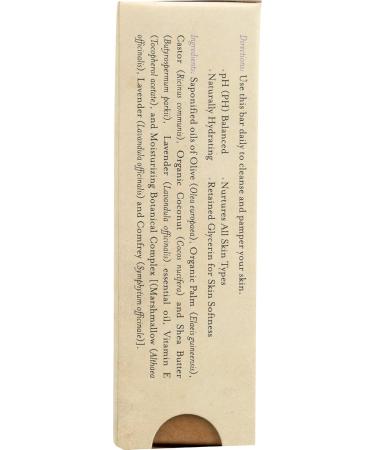 Directions: Use this bar daily to cleanse and pamper your skin.
· pH (PH) Balanced · Nurtures All Skin Types
· Naturally Hydrating · Retained Glycerin for Skin Softness
Ingredients: Saponified oils of Olive (Olea europaea), Organic Palm (Elaeis guineensis),
Castor (Ricinus communis), Organic Coconut (Cocos nucifera) and Shea Butter
(Butyrospermum parkii), Lavender (Lavandula officinalis) essential oil, Vitamin E
(Tocopherol acetate), and Moisturizing Botanical Complex [(Marshmallow (Althaea
officinalis), Lavender (Lavandula officinalis) and Comfrey (Symphytum officinale)].